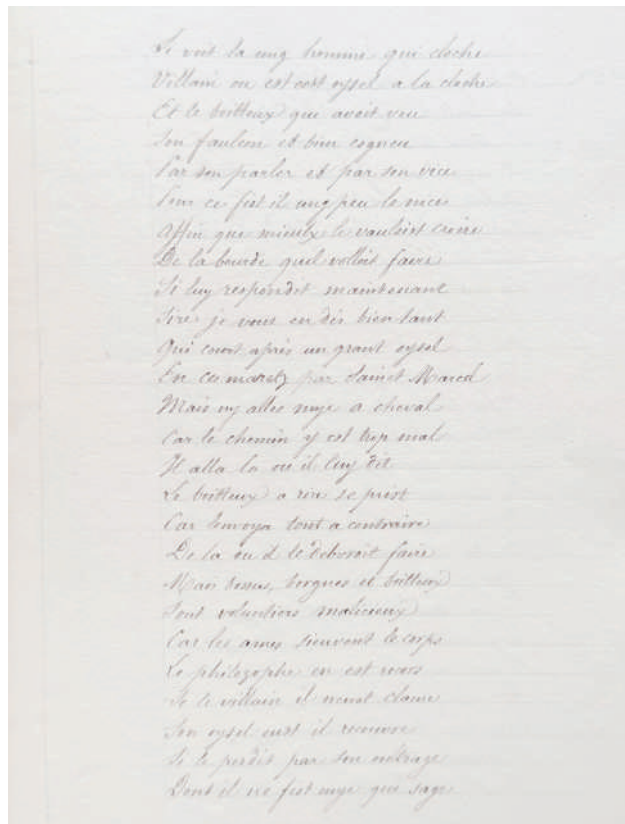 Si voit la ung homme qui cloche
Villain ou est cest oysel a la cloche
Et le boitteux que avoit veu
Son faulcon et bien cogneu
Par son parler et par son vice
Pour ce fist il ung peu le nice
Affin que mieulx le vaulsist croire
De la bourde quil volloit faire
Si luy respondit maintenant
Sire je vous en dis bien tant
Qui court après un grant oysel
En ces maretz par Sainct Marcel
Mais ny alles mye a cheval
Car le chemin y est trop mal
Il alla la ou il luy dit
Le boitteux a rire se prist
Car lenvoya tout a contraire
De la ou il le debvroit faire
Mais bossus, borgnes et boitteux
Sont voluntiers malicieux
Car les ames sieuvent le corps
Le philozophe en est
Se le villain il neust clame
Son oysel eust il
Si le perdit par son oultrage
Dont il ne fist mye que sage